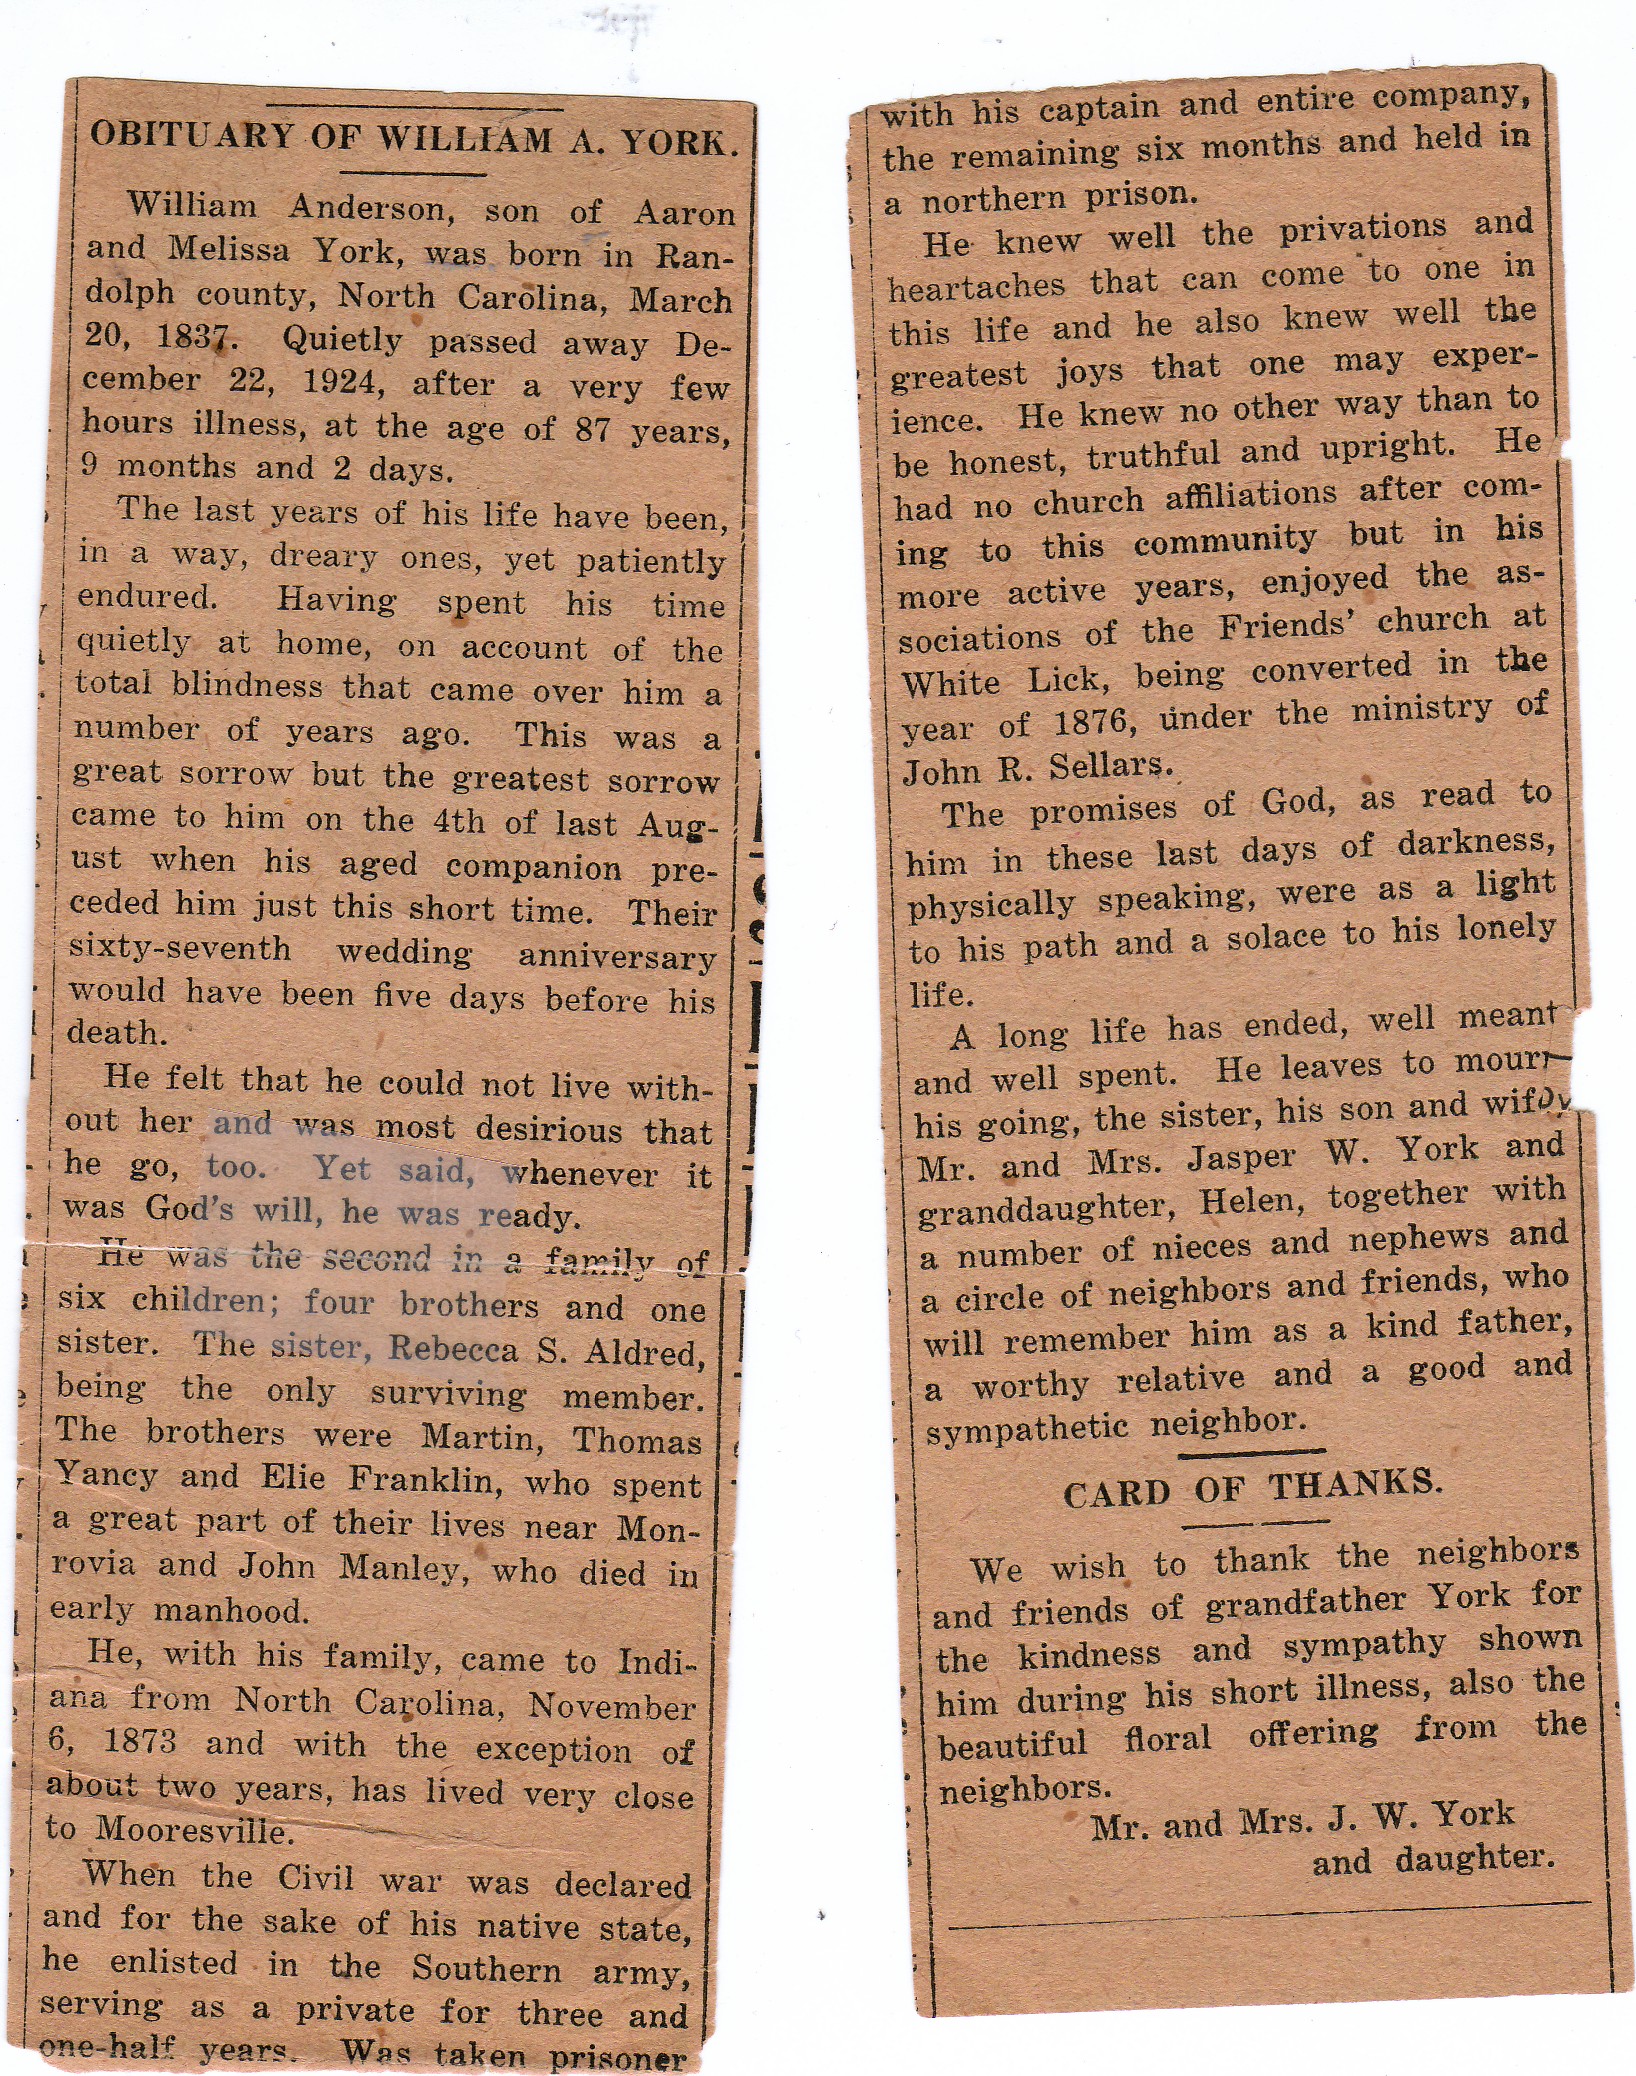 OBITUARY OF WILLIAM A. YORK.
William Anderson, son of Aaron
and Melissa York, was born in Ran-
dolph county, North Carolina, March
20, 1837. Quietly passed away De-
cember 22, 1924, after a very few
hours illness, at the age of 87 years,
9 months and 2 days.
The last years of his life have been,
in a way, dreary ones, yet patiently
endured. Having spent his time
quietly at home, on account of the
total blindness that came over him a
number of years ago. This was a
great sorrow but the greatest sorrow
came to him on the 4th of last Aug-
ust when his aged companion pre-
ceded him just this short time. Their
sixty-seventh wedding anniversary
would have been five days before his
death.
He felt that he could not live with-
out her and was most desirious that
he go, too. Yet said, whenever it
was God's will, he was ready.
He was the second in a family of
six children; four brothers and one
sister. The sister, Rebecca S. Aldred,
being the only surviving member.
The brothers were Martin, Thomas
Yancy and Elie Franklin, who spent
a great part of their lives near Mon-
rovia and John Manley, who died in
early manhood.
He, with his family, came to Indi-
ana from North Carolina, November
6, 1873 and with the exception of
about two years, has lived very close
to Mooresville.
When the Civil war was declared
and for the sake of his native state,
he enlisted in the Southern army,
serving as a private for three and
one-half years. Was taken prisoner
with his captain and entire company,
the remaining six months and held in
a northern prison.
He knew well the privations and
heartaches that can come to one in
this life and he also knew well the
greatest joys that one may exper-
ience. He knew no other way than to
be honest, truthful and upright. He
had no church affiliations after com-
ing to this community but in his
more active years, enjoyed the as-
sociations of the Friends' church at
White Lick, being converted in the
year of 1876, under the ministry of
John R. Sellars.
The promises of God, as read to
him in these last days of darkness,
physically speaking, were as a light
to his path and a solace to his lonely
life.
A long life has ended, well meant
and well spent. He leaves to mourn
his going, the sister, his son and wife,
Mr. and Mrs. Jasper W. York and
granddaughter, Helen, together with
a number of nieces and nephews and
a circle of neighbors and friends, who
will remember him as a kind father,
a worthy relative and a good and
sympathetic neighbor.
CARD OF THANKS.
We wish to thank the neighbors
and friends of grandfather York for
the kindness and sympathy shown
him during his short illness, also the
beautiful floral offering from the
neighbors.
Mr. and Mrs. J. W. York
and daughter.